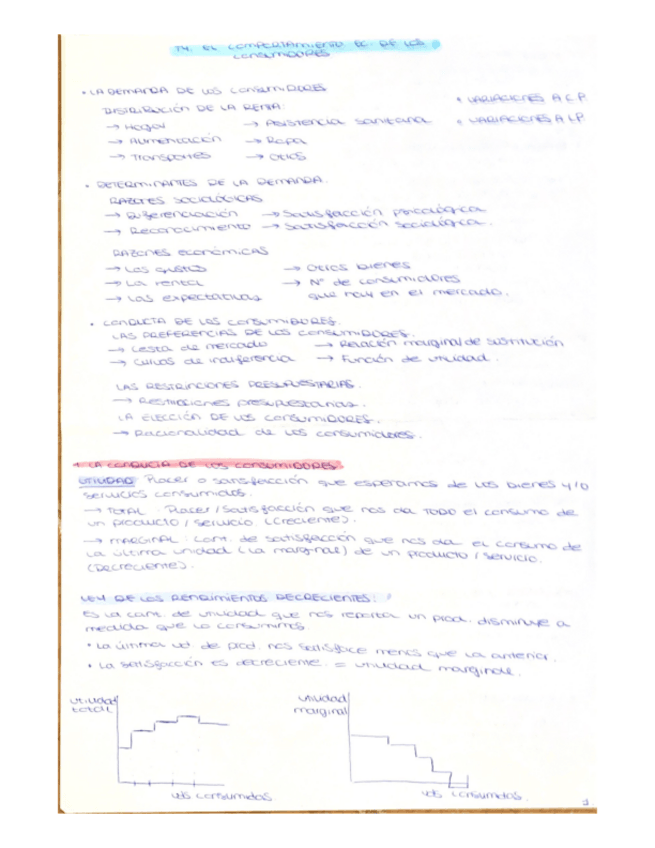 T4. EL COMPORTAMIENTO EC. DE LOS
CONSUMIDORES
• LA DEMANDA DE LOS CONSUMIDORES
DISTRIBUCIÓN DE LA RENTA:
• VARIACIONES A C.P.
→ Hogar → Asistencia sanitaria • VARIACIONES A LP.
→ Alimentación → Ropa
→ Transportes → Otros
• DETERMINANTES DE LA DEMANDA.
RAZONES SOCIOLÓGICAS
→ Diferenciación → Satisfacción psicológica
→ Reconocimiento → Satisfacción sociológica.
RAZONES económicas
→ Los gustos → Otros bienes
→ La renta → Nº de consumidores
→ Las expectativas que hay en el mercado.
• CONDUCTA DE LOS CONSUMIDORES.
LAS PREFERENCIAS DE LOS CONSUMIDORES.
→ Cesta de mercado → Relación marginal de sustitución
→ Curvas de indiferencia → Función de utilidad.
LAS RESTRICCIONES PRESUPUESTARIAS.
→ Restricciones presupuestarias.
LA ELECCIÓN DE LOS CONSUMIDORES.
→ Racionalidad de los consumidores.
1. LA CONDUCTA DE LOS CONSUMIDORES.
UTILIDAD: Placer o satisfacción que esperamos de los bienes y/o
servicios consumidos.
→ TOTAL: Placer/Satisfacción que nos da TODO el consumo de
un producto/servicio. (Creciente).
→ MARGINAL: cant. de satisfacción que nos da el consumo de
la última unidad (la marginal) de un producto/servicio.
(Decreciente).
LEY DE LOS RENDIMIENTOS DECRECIENTES:
Es la cant. de utilidad que nos reporta un prod. disminuye a
medida que lo consumimos.
• La última ud de prod. nos satisface menos que la anterior.
• La satisfacción es decreciente = utilidad marginal.
utilidad
total
utilidad
marginal
uds consumidas
uds consumidas.
1